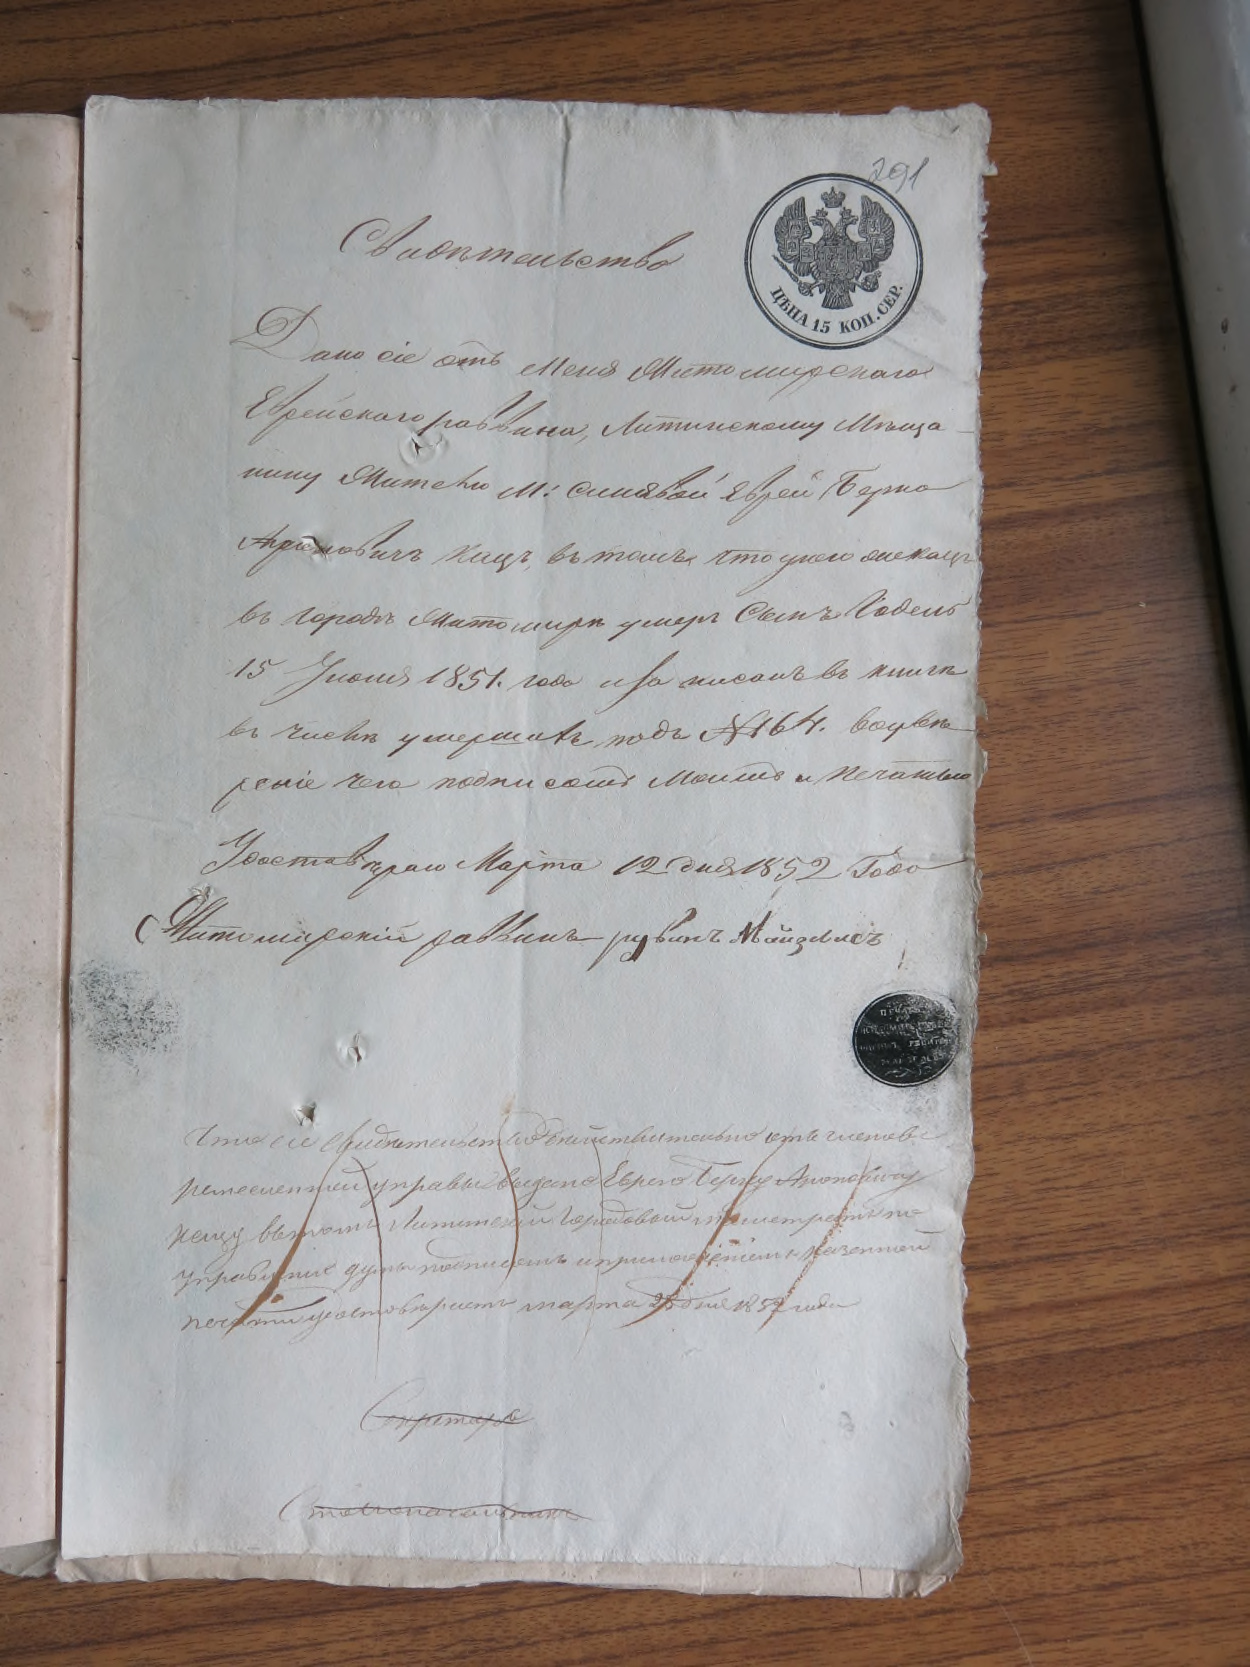 291
ЦѢНА 15 КОП. СЕР.
Свидѣтельство
Дано сіе отъ Меня Житомирскаго
Еврейскаго раввина, Литинскому Мѣща-
нину Жителю М: Синявой Еврей Берко
Ароновичъ Кацъ, въ томъ что унего
въ городѣ Житомирѣ умеръ Сынъ Іодель
15 Іюня 1851. года и записанъ въ книгѣ
въ числѣ умершихъ подъ №164. воувѣ-
реніе чего подписомъ Моимъ и печатью
Удостовѣраю Марта 12 дня 1852 Года
Житомирскій раввинъ рувинъ Майзельсъ
Что сіе свидѣтельство дѣйствительно отъ
ремесленной управы выдано Еврею Берку Ароновичу
Кацу вътомъ Литинскій Городовой магистратъ по
управленію думы подписомъ иприложеніемъ казенной
печати удостовѣряетъ марта дня 1852 года
Секретарь
Столоначальникъ